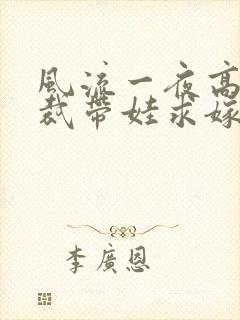 風流一夜高
裁帶娃求嫁
李廣恩